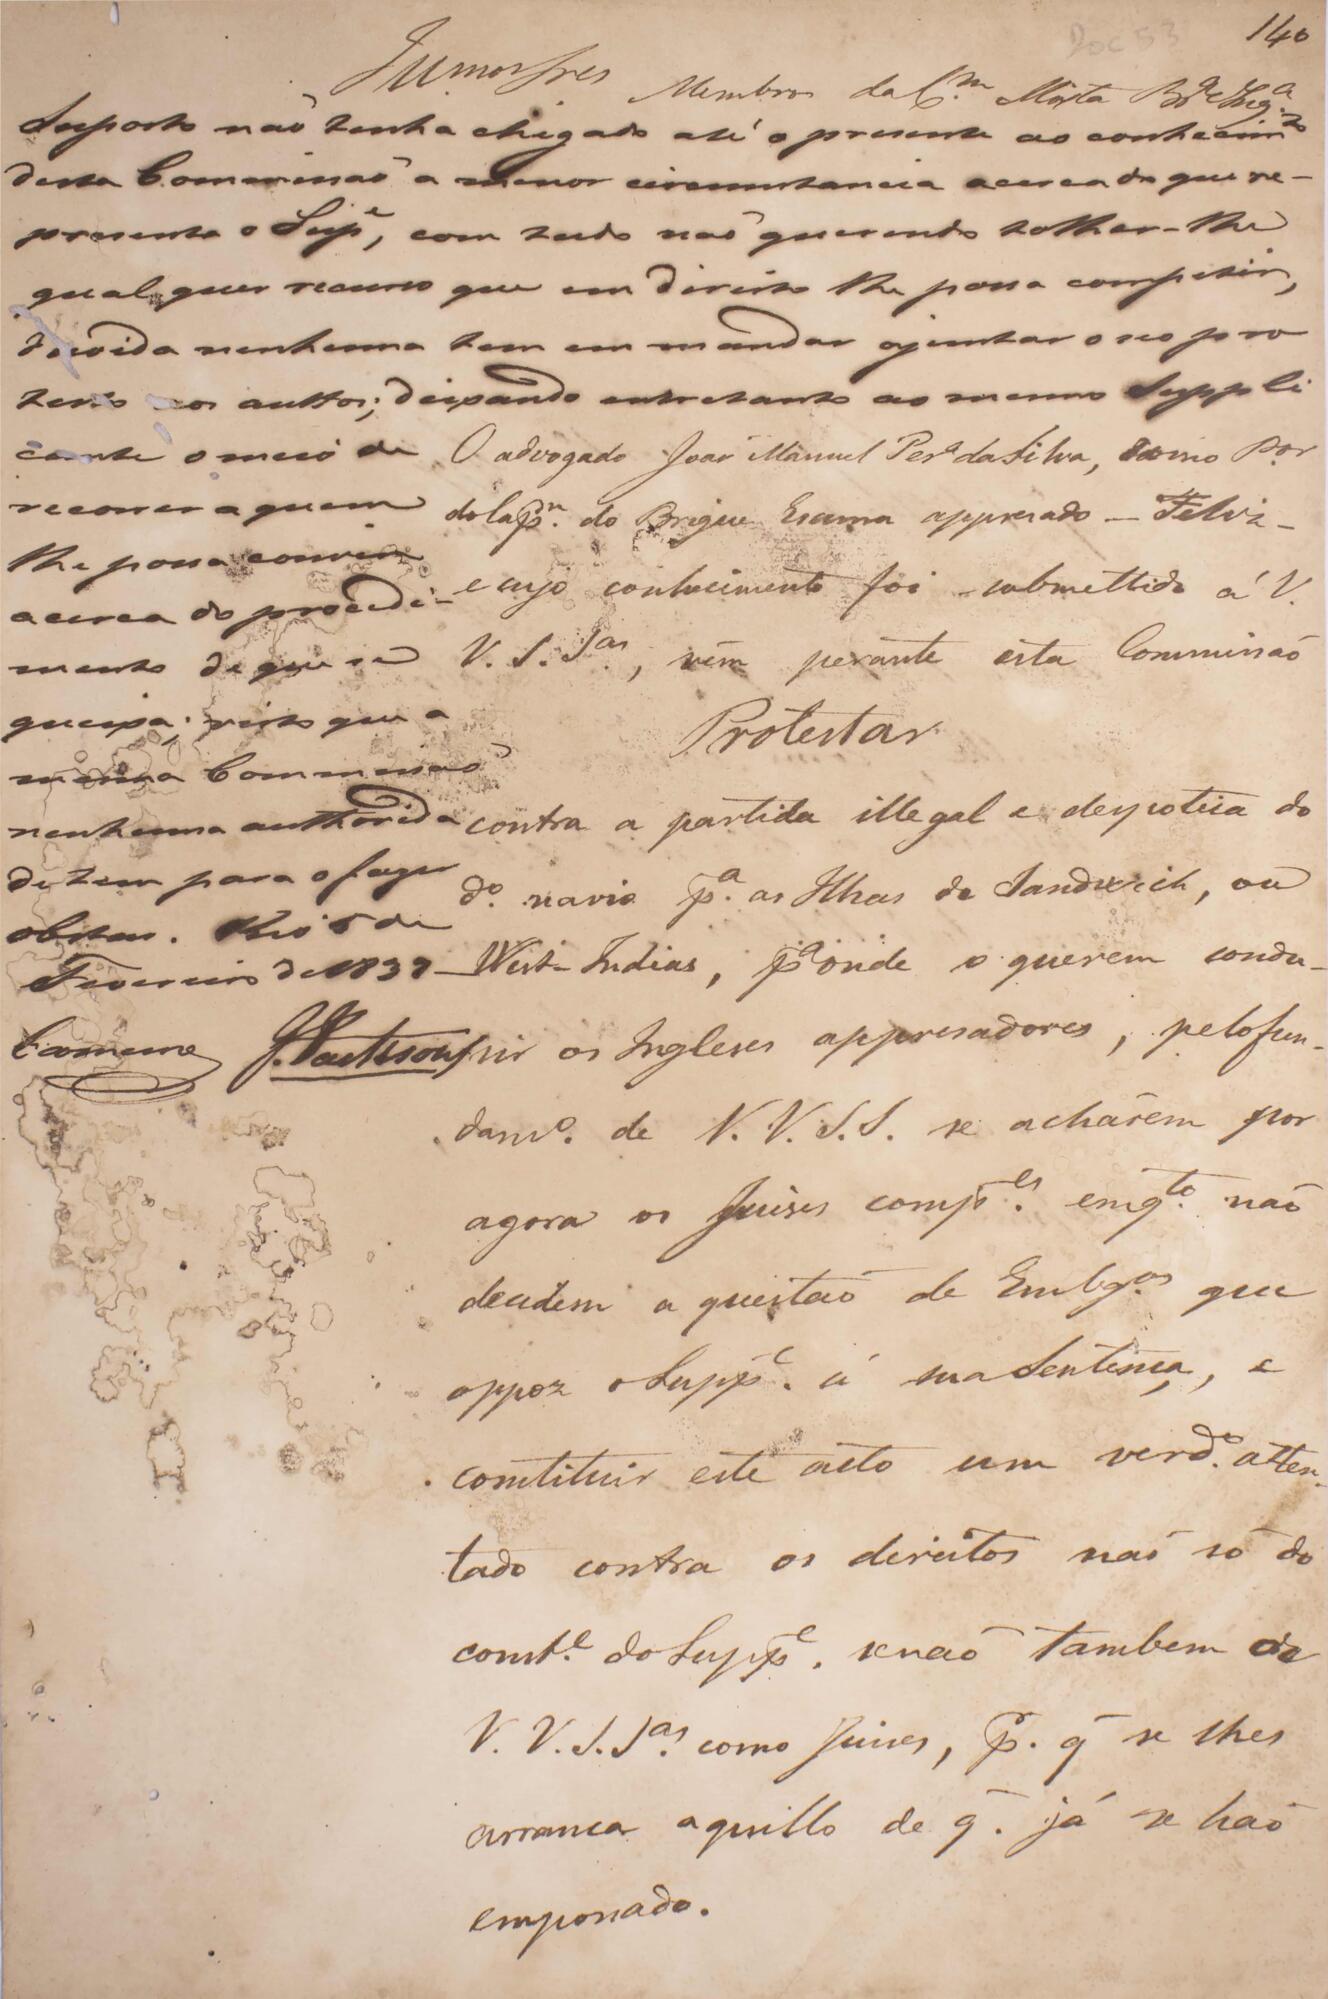 Doc 53
140
Membros da Com. Mixta Br.ª e Ing.ª
Suposto naõ tenha chegado até o presente ao conhecim.to
desta Commissaõ a menor circunstancia acerca do que re-
presenta o Sup.e, com tudo naõ querendo tolher-lhe
qualquer recurso que em direito lhe possa competir,
duvida nenhuma tem em mandar ajuntar o seo pro
testo aos auttos; deixando entretanto ao mesmo Suppli
cante o meio de
recorrer a quem
lhe possa convir
acerca do procedi-
mento de que se
queixa; visto que a
mesma Commissaõ
nenhuma authorida
de tem para o fazer
obstar. Rio 5 de
Fevereiro de 1839
Carneiro
O advogado Joaõ Manuel Per.ª da Silva, como Por
do Cap.m do Brigue Escuna appresado — Feliz —
e cujo conhecimento foi submettido á V.
V. S. S.as, vêm perante esta Commissaõ
Protestar
contra a partida illegal e despotica do
d.o navio p.ª as Ilhas de Sandwich, ou
West-Indias, p.ª onde o querem condu-
sir os Ingleses appresadores, pelo fun-
dam.o de V. V. S. S. se acharem por
agora os Juises comp.es emq.to naõ
decidem a questaõ de Emb.gos que
oppoz o Supp.e á sua Sentença, e
constituir este acto um verd.o atten-
tado contra os direitos naõ só do
const.e do Supp.e senaõ tambem de
V. V. S. S.as como Juises, p.r q̃ se lhes
arranca aquillo de q̃. já se haõ
empossado.